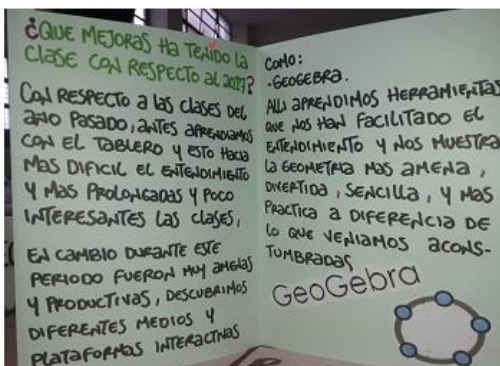 ¿QUE MEJORAS HA TENIDO LA
CLASE CON RESPECTO AL 2017?
CON RESPECTO a las clases DEL
año PASADO, aNTES aPRENDIamos
CON EL TABLERO Y ESTO Hacia
Mas DIFICIL EL ENTENDIMIENTO
Y Mas PROLONGADAS Y POCO
INTERESANTES LAS CLASES,
EN CAMBIO DURANTE ESTE
PERIODO FUERON MUY amenas
Y PRODUCTIVAS, DESCUBRIMOS
DIFERENTES MEDIOS Y
PLATAFORMAS INTERACTIVAS
COMO:
-GEOGEBRA.
ALLI APRENDIMOS HERRAMIENTAS
QUE NOS HAN FACILITADO EL
ENTENDIMIENTO Y NOS MUESTRA
La GEOMETRIA Mas AMENA,
DIVERTIDA, SENCILLA, Y Mas
PRACTICA a DIFERENCIA DE
LO QUE VENIAMOS ACONS-
TUMBRADAS
GeoGebra